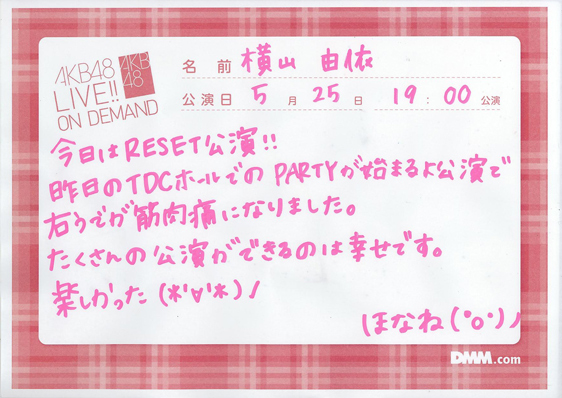 AKB48
LIVE!!
ON DEMAND
AKB
48
名 前 横山 由依
公演日 5 月 25 日 19 : 00 公演
今日はRESET公演!!
昨日のTDCホールでの PARTYが始まるよ公演で
右うでが筋肉痛になりました。
たくさんの公演ができるのは幸せです。
楽しかった (*'∀'*)ノ
ほなね(°o°)ノ
DMM.com